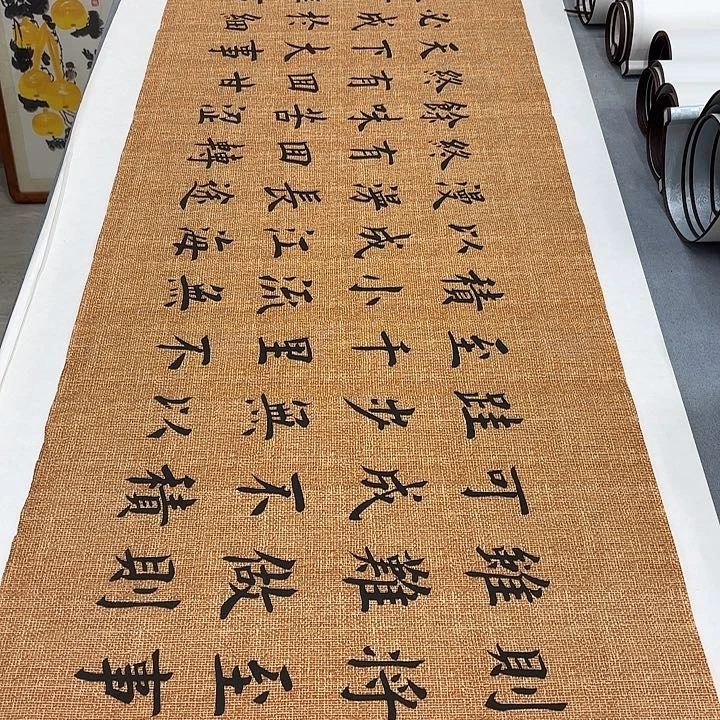 則將至事
雖難做則
可成不積
跬步無以
至千里不
積小流無
以成江海
漫漫長途
終有回轉
餘味苦澀
終有回甘
天下大事
必成於細